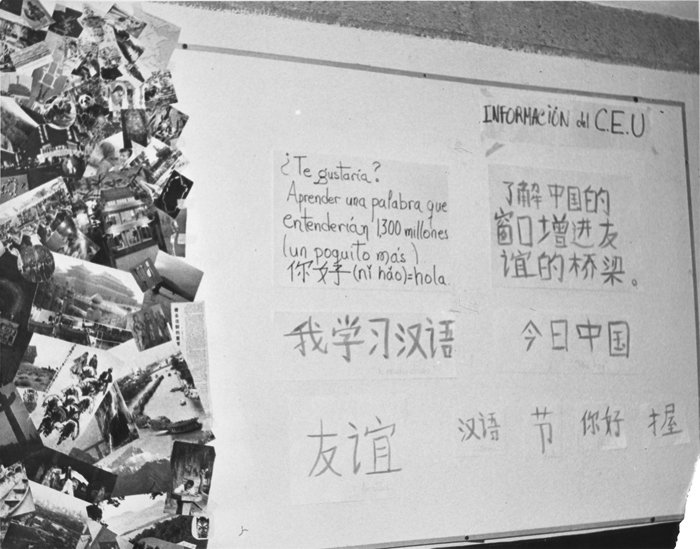 INFORMACIÓN del C.E.U
¿Te gustaría?
Aprender una palabra que
entenderían 1,300 millones
(un poquito más)
你好 (nǐ hǎo)=hola.
了解中国的
窗口增进友
谊的桥梁。
我学习汉语
今日中国
友谊
汉语 节 你好 握